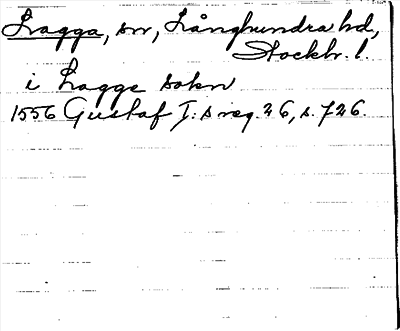 Lagga, sn, Långhundra hd,
Stockh. l.
i Lagge sokn
1556 Gustaf I:s reg. 26, s. 726.